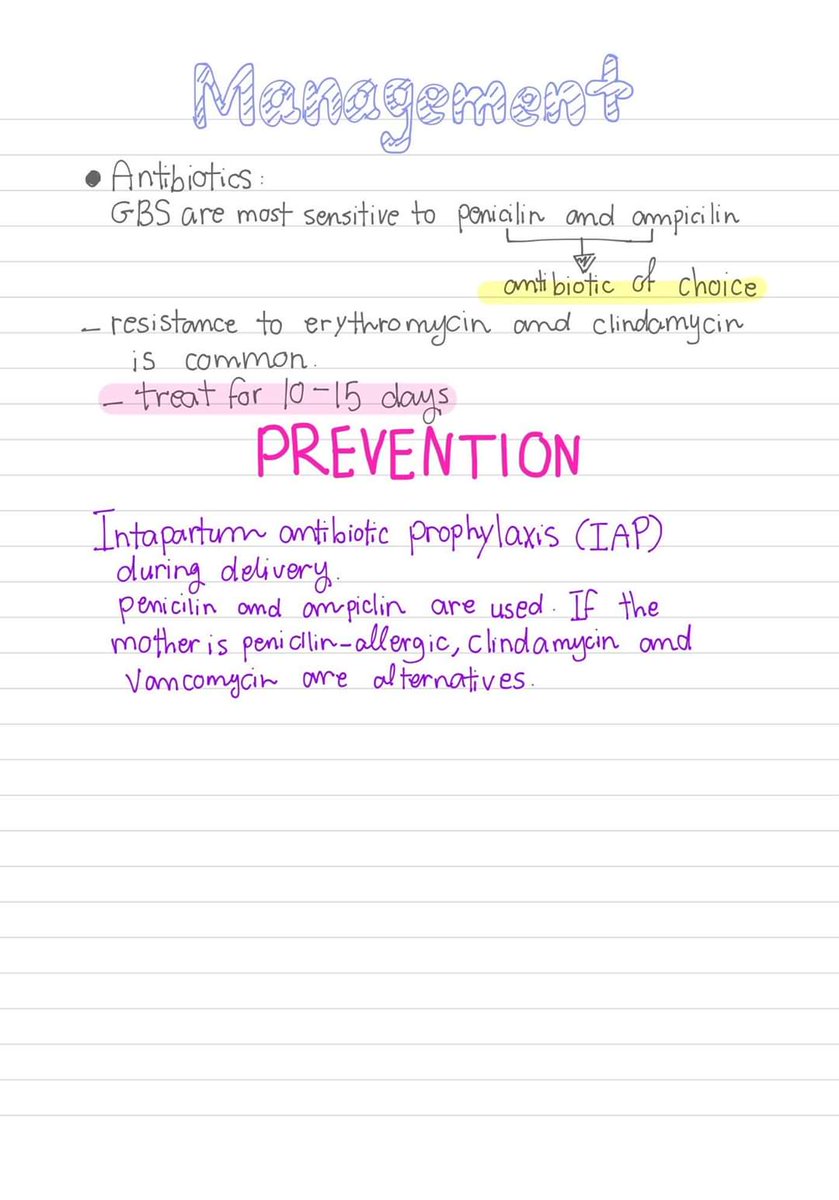 Management
• Antibiotics:
GBS are most sensitive to penicilin and ampicilin
antibiotic of choice
- resistance to erythromycin and clindamycin
is common.
- treat for 10-15 days
PREVENTION
Intapartum antibiotic prophylaxis (IAP)
during delivery.
penicilin and ampiclin are used. If the
mother is penicillin-allergic, clindamycin and
Vancomycin are alternatives.